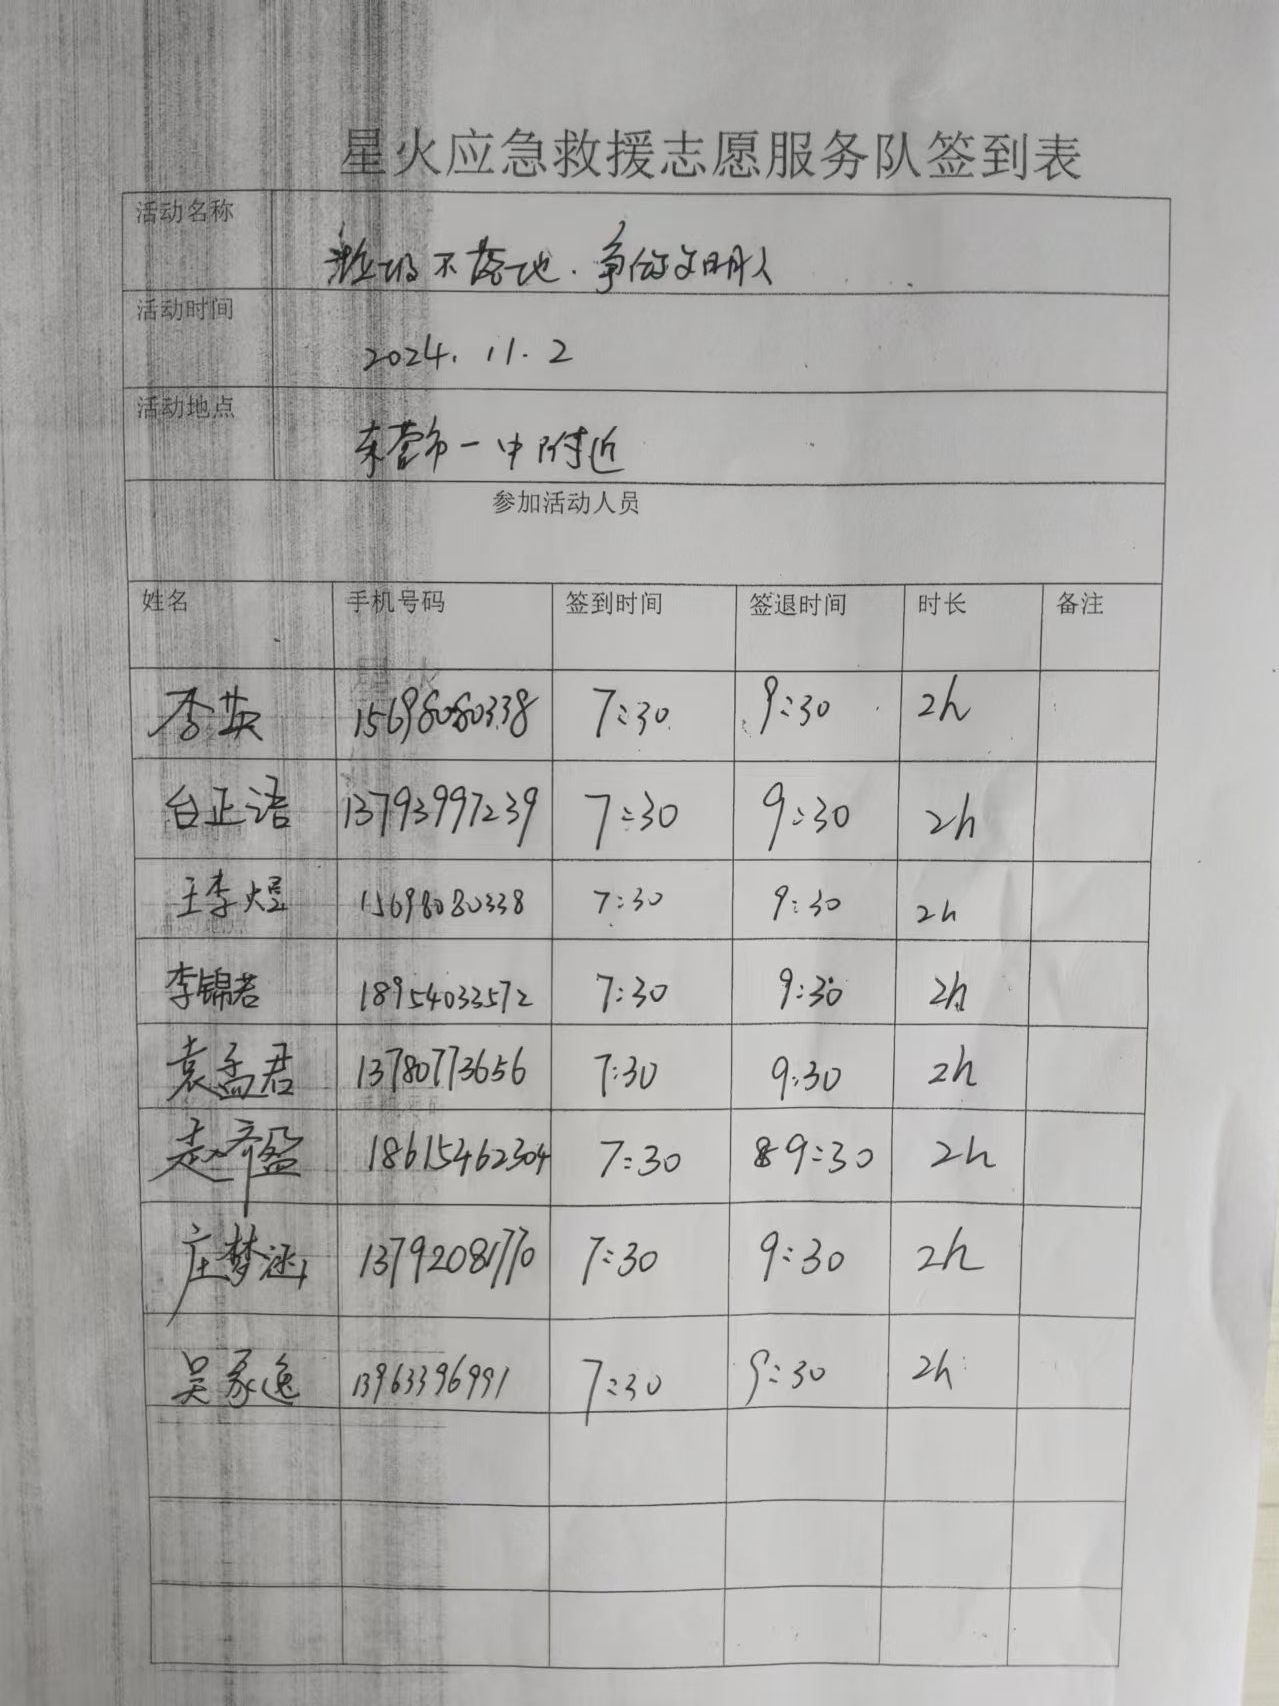 星火应急救援志愿服务队签到表
活动名称 垃圾不落地.争做文明人
活动时间 2024.11.2
活动地点 东营市一中附近
参加活动人员
姓名 手机号码 签到时间 签退时间 时长 备注
李英 15698080338 7:30 9:30 2h
台正语 13793997239 7:30 9:30 2h
王李煜 15698080338 7:30 9:30 2h
李锦若 18954033572 7:30 9:30 2h
袁孟君 13780773656 7:30 9:30 2h
赵齐盈 18615462304 7:30 9:30 2h
庄梦涵 13792081770 7:30 9:30 2h
吴家逸 13963396991 7:30 9:30 2h